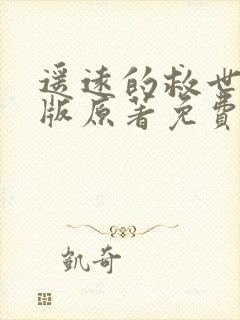 遥远的救世
版原著免费
凯奇